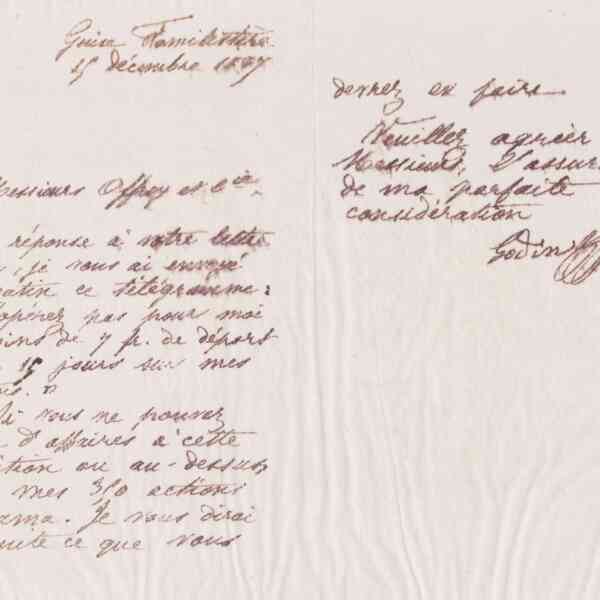 Guise Familistère
15 décembre 1887
Messieurs Offroy et Cie,
réponse à votre lettre
, je vous ai envoyé
matin ce télégramme :
opérer pas pour moi
moins de 7 f. de déport
15 jours sur mes
. »
Si vous ne pouvez
d'affaires à cette
ition ou au-dessus
mes 350 actions
ama. Je vous dirai
suite ce que vous
devrez en faire
Veuillez agréer
Messieurs, l'assur
de ma parfaite
considération
Godin